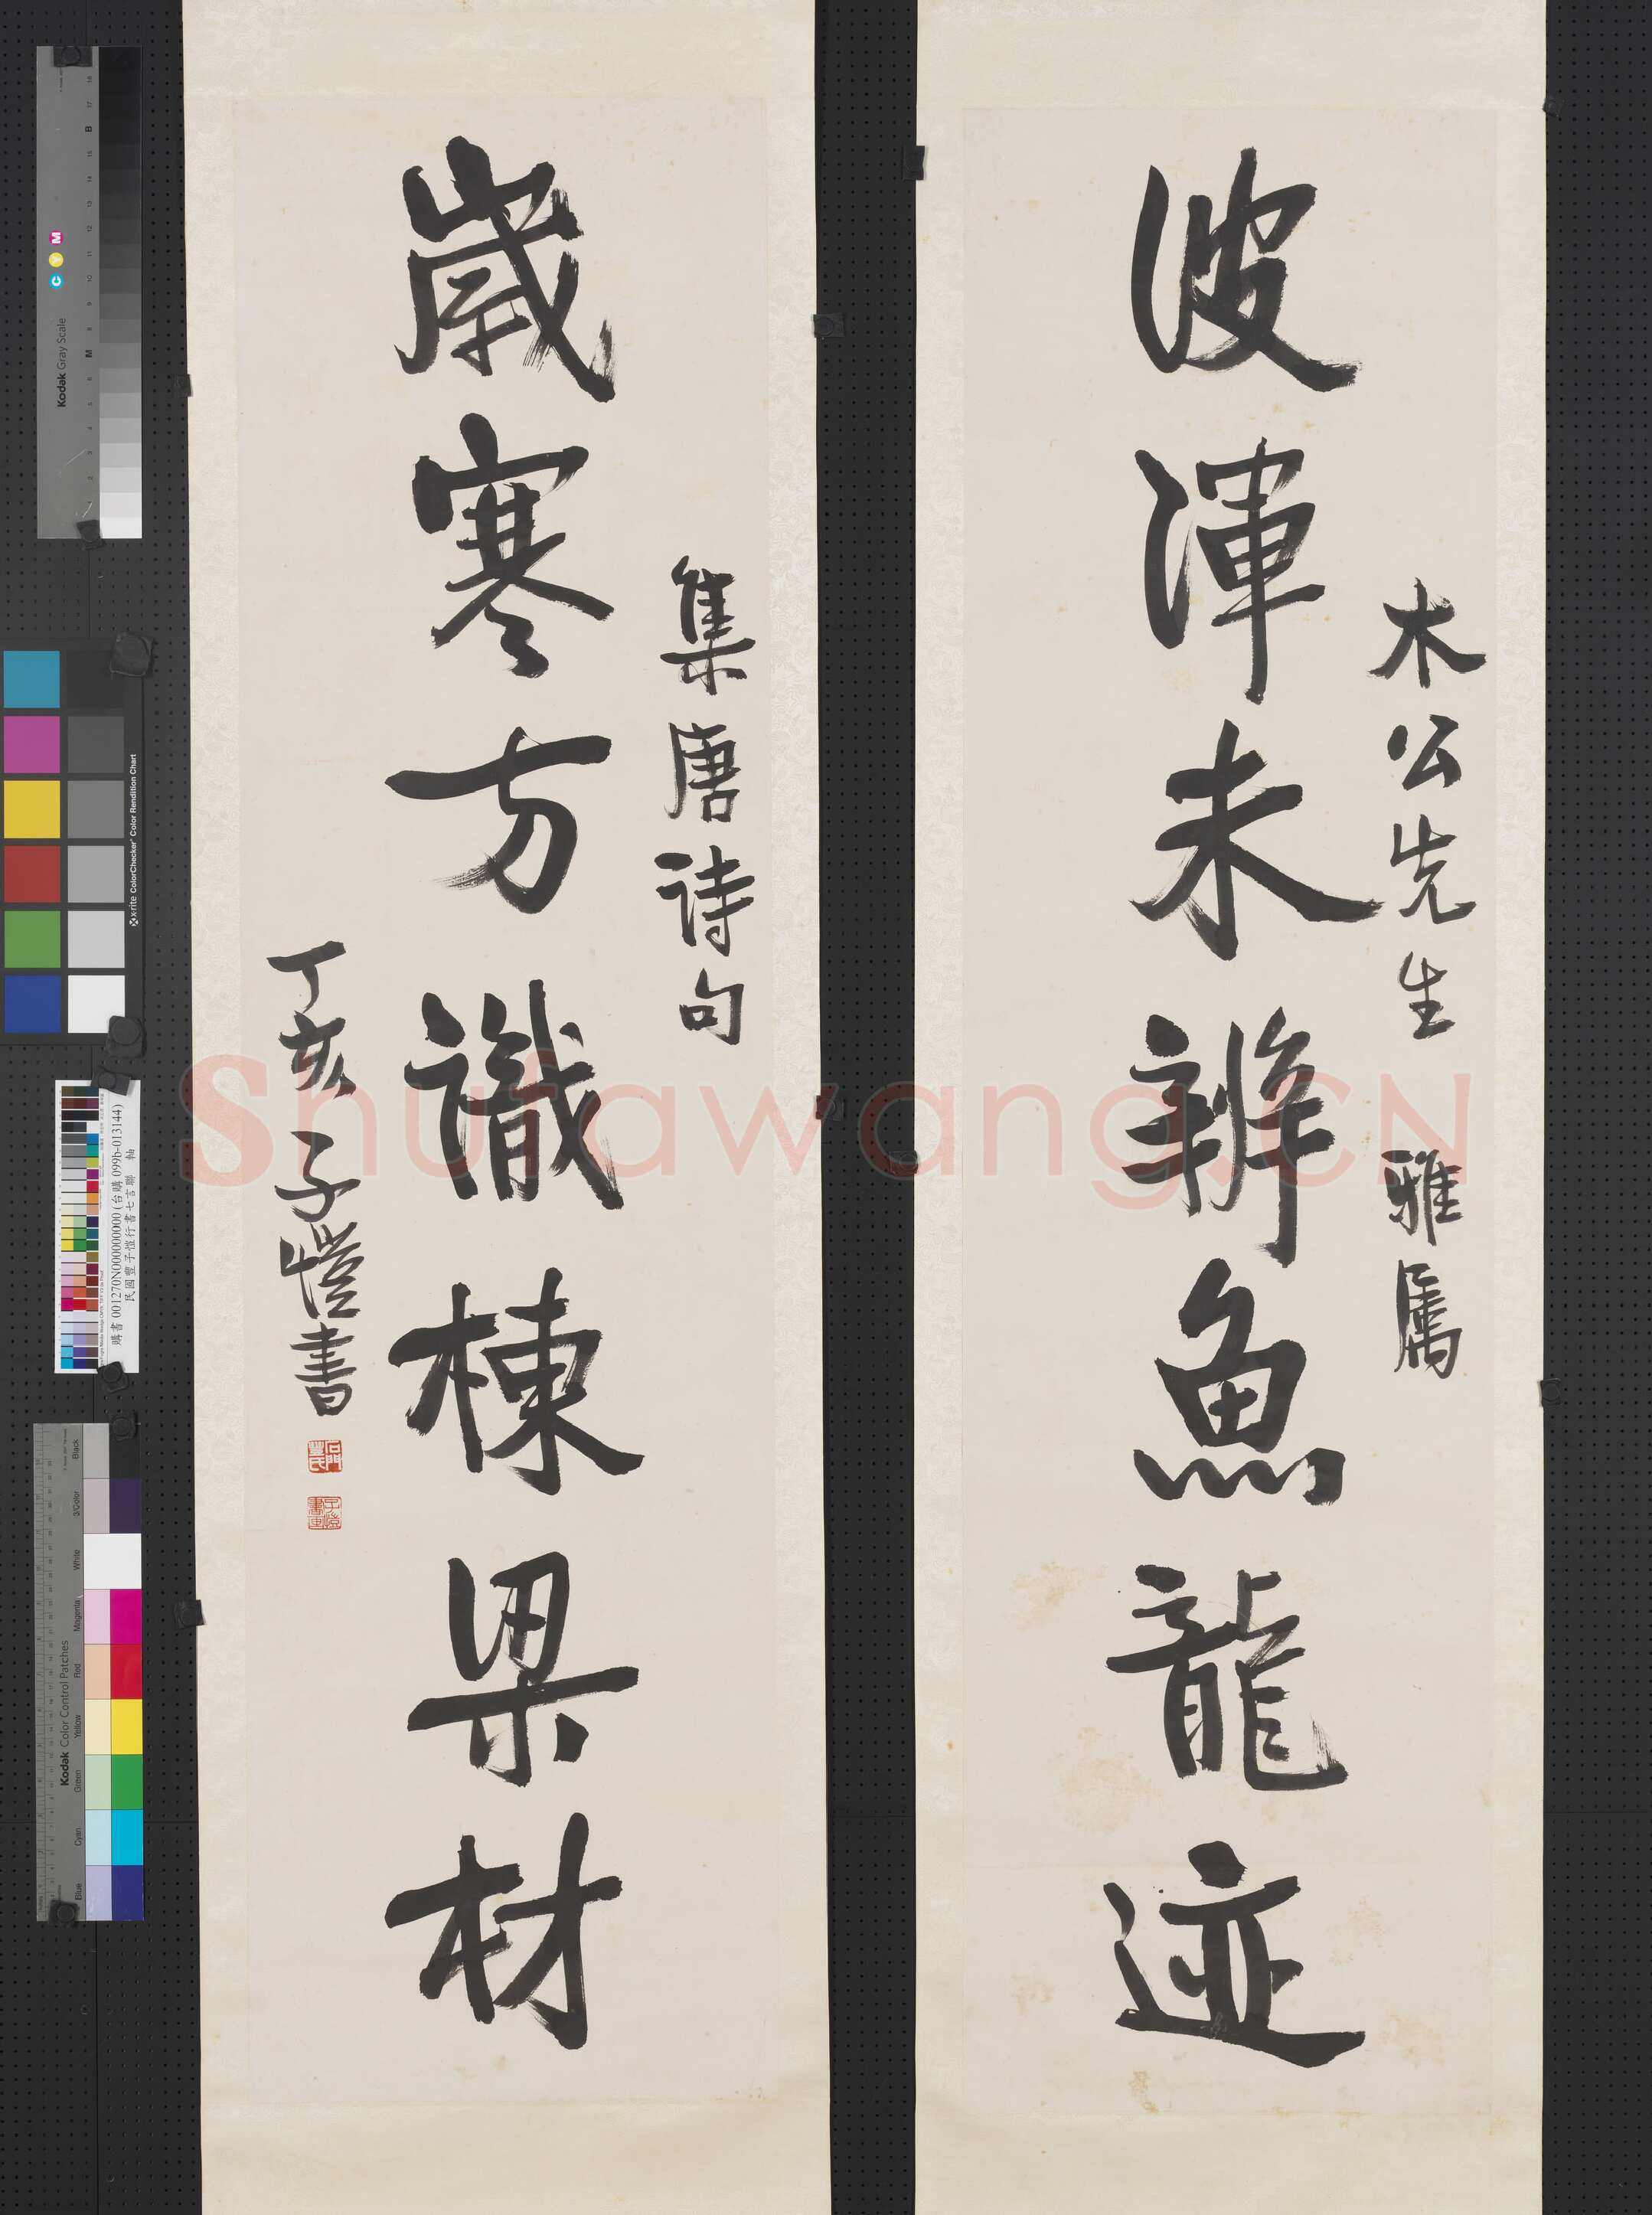 波渾未辨魚龍迹
木公先生 雅属
歲寒方識棟梁材
集唐诗句
丁亥 子愷書
石門豐氏
子愷書畫
Shufawang.CN
Kodak Gray Scale
C Y M
x-rite ColorChecker Color Rendition Chart
購書 001270N000000000 (台購 099b-013144)
民國豐子愷行書七言聯 軸
Kodak Color Control Patches
Blue Cyan Green Yellow Red Magenta White 3/Color Black